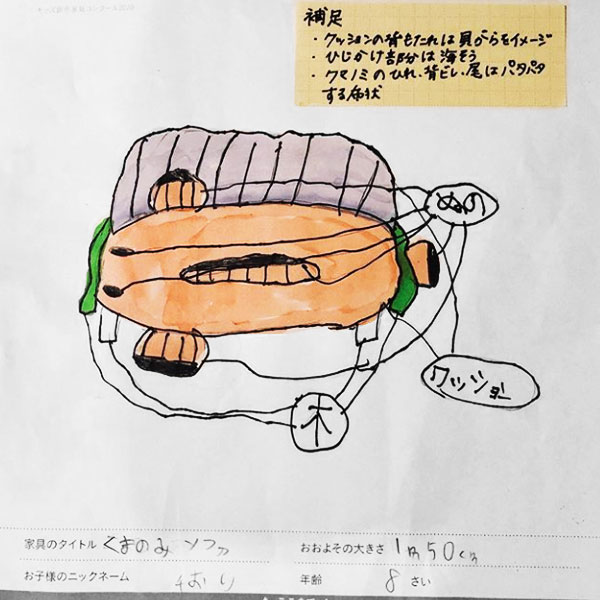 キッズ家具デザインコンクール2020
補足
・クッションの背もたれは貝がらをイメージ
・ひじかけ部分は海そう
・クマノミのひれ、背ビレ、尾はパタパタ
する布状
ぬの
クッション
木
家具のタイトル くまのみソファ
おおよその大きさ 1m50cm
お子様のニックネーム ちおり
年齢 8さい